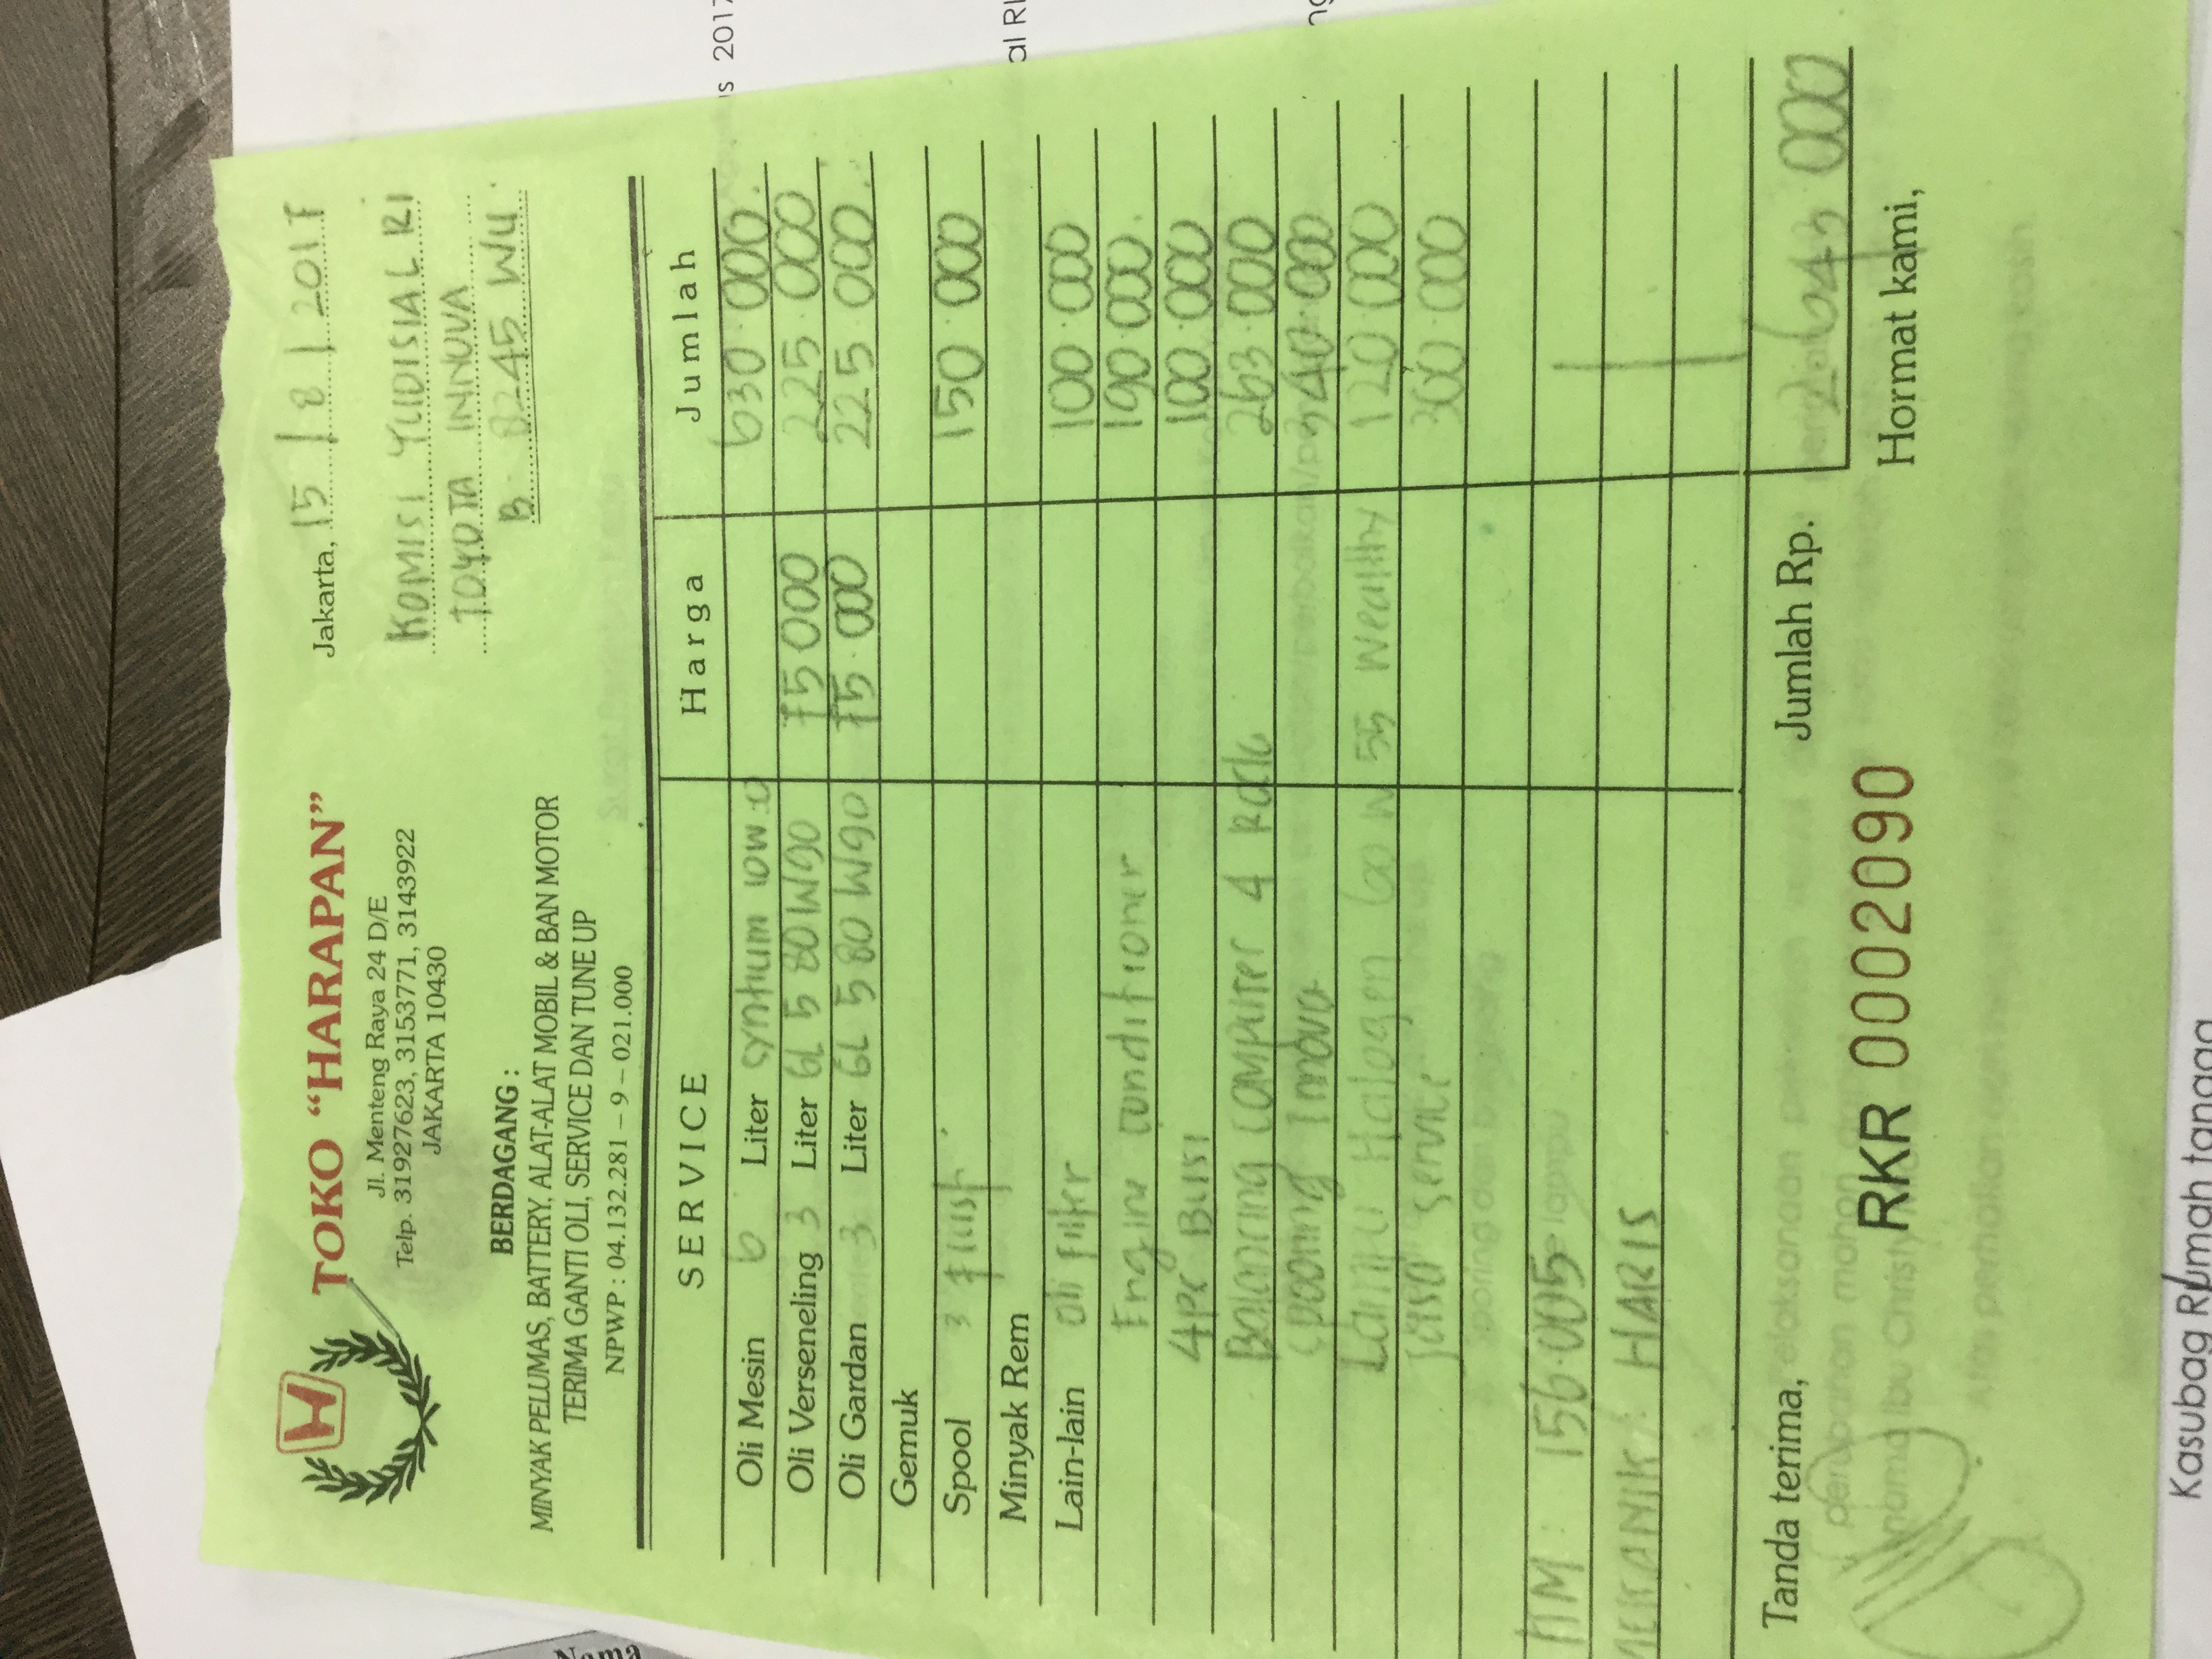 H
TOKO "HARAPAN"
Jl. Menteng Raya 24 D/E
Telp. 31927623, 3153771, 3143922
JAKARTA 10430
BERDAGANG :
MINYAK PELUMAS, BATTERY, ALAT-ALAT MOBIL & BAN MOTOR
TERIMA GANTI OLI, SERVICE DAN TUNE UP
NPWP : 04.132.281 – 9 – 021.000
Jakarta, 15 / 8 / 2017
KOMISI YUDISIAL RI
TOYOTA INNOVA
B 8245 WU
SERVICE Harga Jumlah
Oli Mesin 6 Liter Syntium 10W 630.000.
Oli Verseneling 3 Liter GL 5 80W90 75000 225.000
Oli Gardan 3 Liter GL 5 80W90 75.000 225.000.
Gemuk
Spool 3 flush 150.000
Minyak Rem
Lain-lain Oli Filter 100.000
Engine Conditioner 190.000.
4pc Busi 100.000
Balancing Computer 4 Roda 263.000
Spooring Innova 340.000
Lampu Halogen 60 W 55 Wealthy 120.000
Jasa Service 300.000
KM : 156.005
MEKANIK : HARIS
Tanda terima,
Jumlah Rp. 2.643.000
RKR 0002090
Hormat kami,
Nama
s 2017
al RI
Sporing dan
lampu
Pelaksanaan
perubahan mohon
nama Ibu Christy
Kasubag Rumah tangga